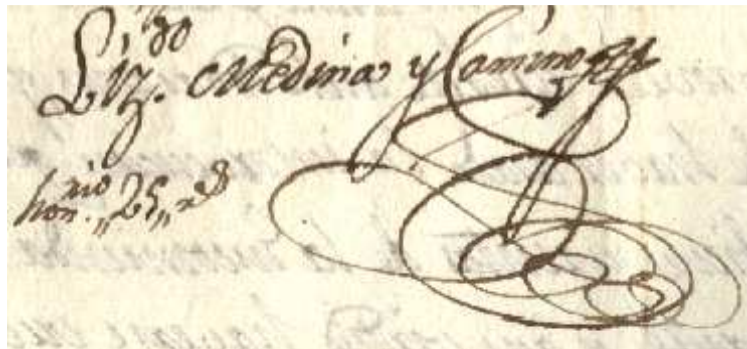 Liz.do Medina y Camino
hon.rio „25„ rs